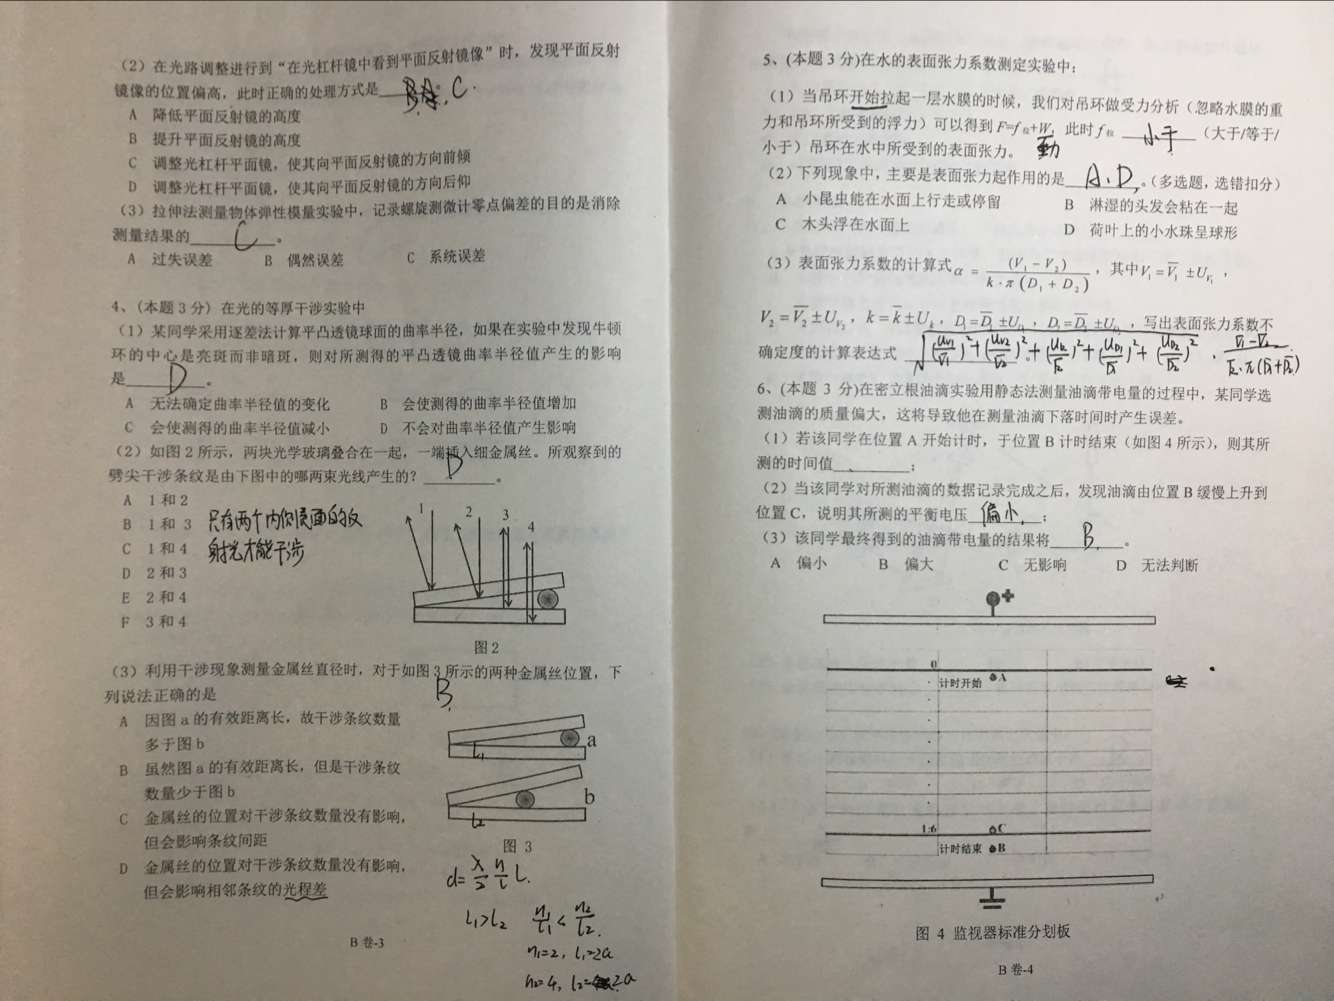 (2)在光路调整进行到“在光杠杆镜中看到平面反射镜像”时,发现平面反射
镜像的位置偏高,此时正确的处理方式是 C.
A 降低平面反射镜的高度
B 提升平面反射镜的高度
C 调整光杠杆平面镜,使其向平面反射镜的方向前倾
D 调整光杠杆平面镜,使其向平面反射镜的方向后仰
(3)拉伸法测量物体弹性模量实验中,记录螺旋测微计零点偏差的目的是消除
测量结果的 C 。
A 过失误差 B 偶然误差 C 系统误差
4、(本题3分)在光的等厚干涉实验中
(1)某同学采用逐差法计算平凸透镜球面的曲率半径,如果在实验中发现牛顿
环的中心是亮斑而非暗斑,则对所测得的平凸透镜曲率半径值产生的影响
是 D 。
A 无法确定曲率半径值的变化 B 会使测得的曲率半径值增加
C 会使测得的曲率半径值减小 D 不会对曲率半径值产生影响
(2)如图2所示,两块光学玻璃叠合在一起,一端插入细金属丝。所观察到的
劈尖干涉条纹是由下图中的哪两束光线产生的? D 。
A 1和2
B 1和3
C 1和4
D 2和3
E 2和4
F 3和4
只有两个内侧镜面的反
射光才能干涉
1 2 3 4
图2
(3)利用干涉现象测量金属丝直径时,对于如图3所示的两种金属丝位置,下
列说法正确的是 B.
A 因图a的有效距离长,故干涉条纹数量
多于图b
B 虽然图a的有效距离长,但是干涉条纹
数量少于图b
C 金属丝的位置对干涉条纹数量没有影响,
但会影响条纹间距
D 金属丝的位置对干涉条纹数量没有影响,
但会影响相邻条纹的光程差
L₁
a
L₂
b
图 3
d=λ/2 n/l L.
L₁>L₂ n₁/l₁ < n₂/l₂.
n₁=2, l₁=2a
n₂=4, l₂=2a
B 卷-3
5、(本题3分)在水的表面张力系数测定实验中:
(1)当吊环开始拉起一层水膜的时候,我们对吊环做受力分析(忽略水膜的重
力和吊环所受到的浮力)可以得到F=f拉+W,此时f拉 小于 (大于/等于/
小于)吊环在水中所受到的表面张力。
(2)下列现象中,主要是表面张力起作用的是 A、D 。(多选题,选错扣分)
A 小昆虫能在水面上行走或停留 B 淋湿的头发会粘在一起
C 木头浮在水面上 D 荷叶上的小水珠呈球形
(3)表面张力系数的计算式α = (V₁ − V₂) / k·π(D₁ + D₂) ,其中V₁ = V̄₁ ± U_V₁ ,
V₂ = V̄₂ ± U_V₂ ,k = k̄ ± U_k ,D₁ = D̄₁ ± U_D₁ ,D₂ = D̄₂ ± U_D₂ ,写出表面张力系数不
确定度的计算表达式 √(U_V1/V̄₁)²+(U_V2/V̄₂)²+(U_k/k̄)²+(U_D1/D̄₁)²+(U_D2/D̄₂)² · V̄₁−V̄₂/k̄·π(D̄₁+D̄₂)
6、(本题 3 分)在密立根油滴实验用静态法测量油滴带电量的过程中,某同学选
测油滴的质量偏大,这将导致他在测量油滴下落时间时产生误差。
(1)若该同学在位置A开始计时,于位置B计时结束(如图4所示),则其所
测的时间值 ;
(2)当该同学对所测油滴的数据记录完成之后,发现油滴由位置B缓慢上升到
位置C,说明其所测的平衡电压 偏小. ;
(3)该同学最终得到的油滴带电量的结果将 B. 。
A 偏小 B 偏大 C 无影响 D 无法判断
+
0
计时开始 A
1.6 C
计时结束 B
图 4 监视器标准分划板
B 卷-4